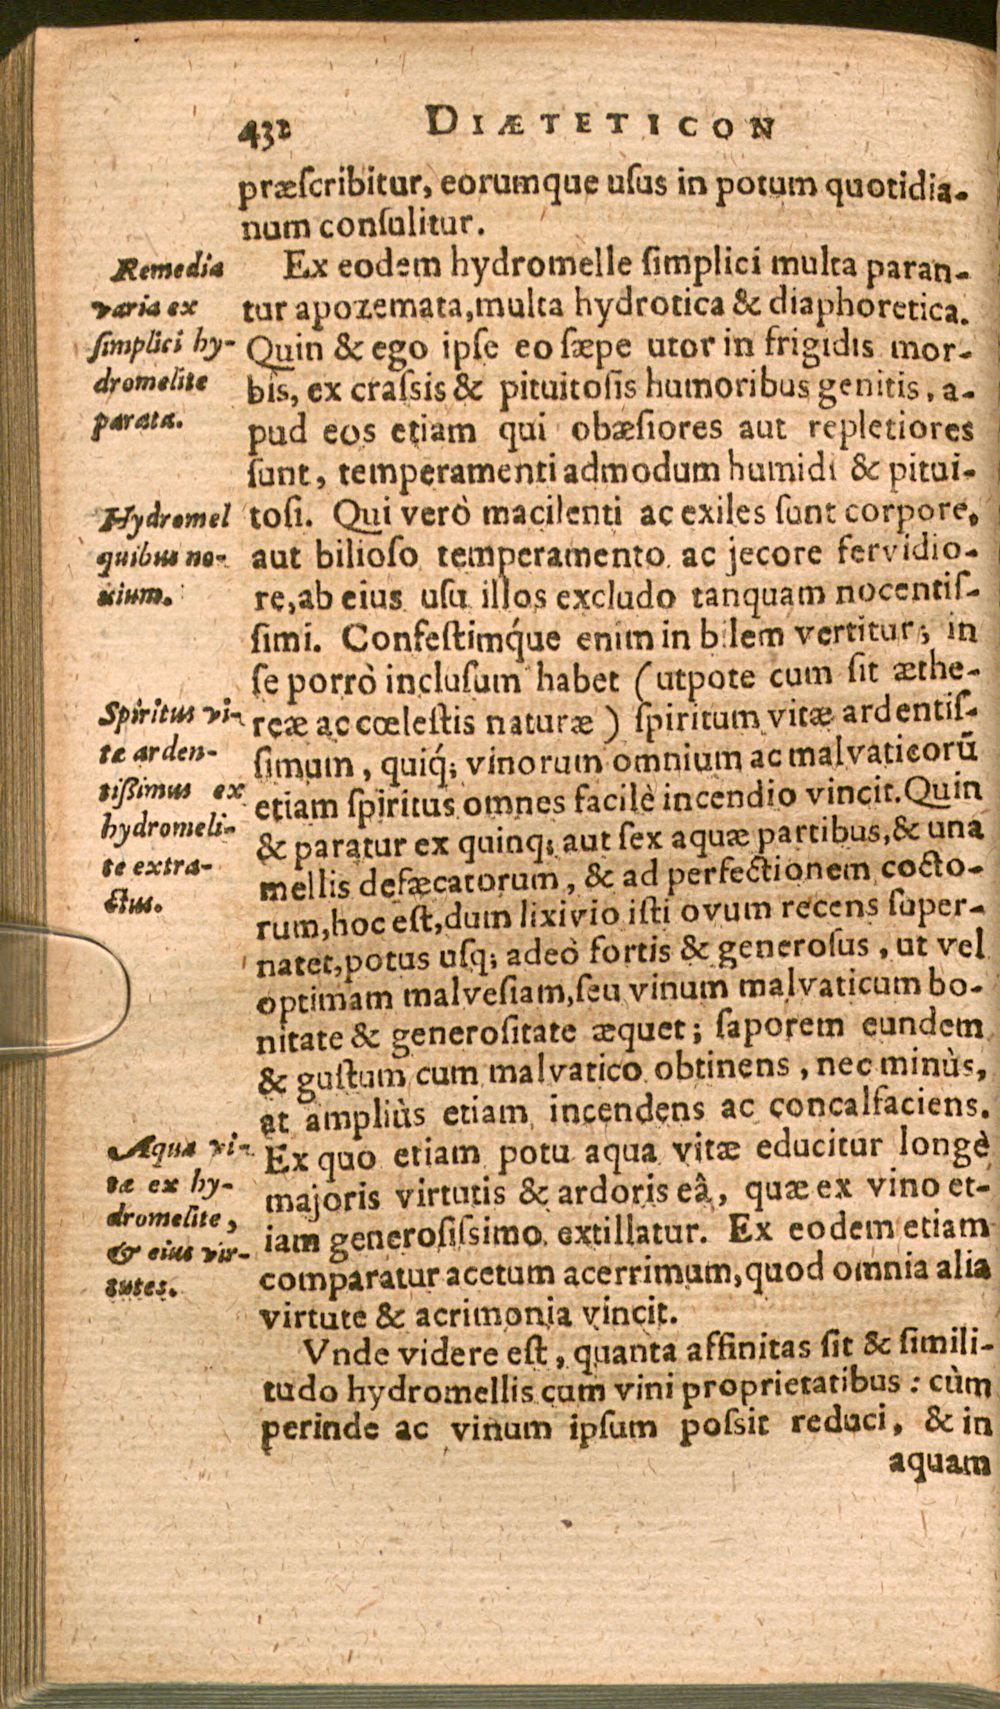 432 DIÆTETICON
præſcribitur, eorumque uſus in potum quotidia-
num conſulitur.
Remedia
varia ex
ſimplici hy-
dromelite
parata.
Ex eodem hydromelle ſimplici multa paran-
tur apozemata, multa hydrotica & diaphoretica.
Quin & ego ipſe eo ſæpe utor in frigidis mor-
bis, ex craſsis & pituitoſis humoribus genitis, a-
pud eos etiam qui obæſiores aut repletiores
ſunt, temperamenti admodum humidi & pitui-
Hydromel
quibus no-
xium.
toſi. Qui verò macilenti ac exiles ſunt corpore,
aut bilioſo temperamento ac jecore fervidio-
re, ab eius uſu illos excludo tanquam nocentiſ-
ſimi. Confeſtimq́ue enim in bilem vertitur; in
ſe porrò incluſum habet (utpote cum ſit æthe-
Spiritus vi-
tæ arden-
tißimus ex
hydromeli-
te extra-
ctus.
reæ ac cœleſtis naturæ) ſpiritum vitæ ardentiſ-
ſimum, quiq́; vinorum omnium ac malvaticorũ
etiam ſpiritus omnes facilè incendio vincit. Quin
& paratur ex quinq; aut ſex aquæ partibus, & una
mellis defæcatorum, & ad perfectionem cocto-
rum, hoc eſt, dum lixivio iſti ovum recens ſuper-
natet, potus uſq; adeò fortis & generoſus, ut vel
optimam malveſiam, ſeu vinum malvaticum bo-
nitate & generoſitate æquet; ſaporem eundem
& guſtum cum malvatico obtinens, nec minùs,
at ampliùs etiam incendens ac concalfaciens.
Aqua vi-
tæ ex hy-
dromelite,
& eius vir-
tutes.
Ex quo etiam potu aqua vitæ educitur longè
majoris virtutis & ardoris eâ, quæ ex vino et-
iam generoſiſsimo extillatur. Ex eodem etiam
comparatur acetum acerrimum, quod omnia alia
virtute & acrimonia vincit.
Vnde videre eſt, quanta affinitas ſit & ſimili-
tudo hydromellis cum vini proprietatibus: cùm
perinde ac vinum ipſum poſsit reduci, & in
aquam